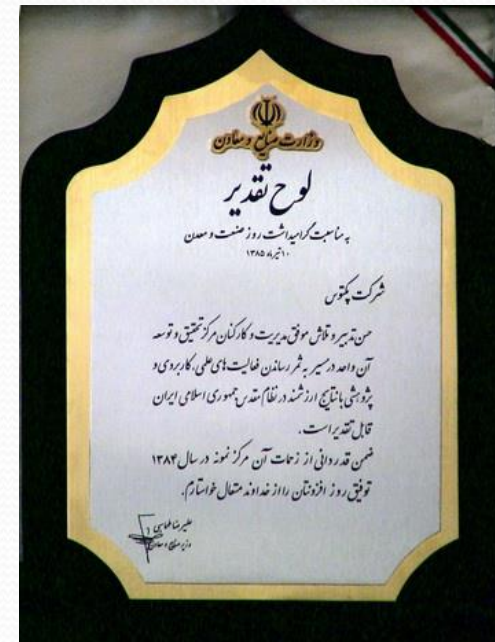 وزارت صنایع و معادن
لوح تقدیر
به مناسبت گرامیداشت روز صنعت و معدن
۱۰ تیرماه ۱۳۸۵
شرکت پکتوس
حسن تدبیر و تلاش موفق مدیریت و کارکنان مرکز تحقیق و توسعه
آن واحد در مسیر به ثمر رساندن فعالیت های علمی، کاربردی و
پژوهشی با نتایج ارزشمند در نظام مقدس جمهوری اسلامی ایران
قابل تقدیر است.
ضمن قدردانی از زحمات آن مرکز نمونه در سال ۱۳۸۴
توفیق روز افزونتان را از خداوند متعال خواستارم.
علیرضا طهماسبی
وزیر صنایع و معادن